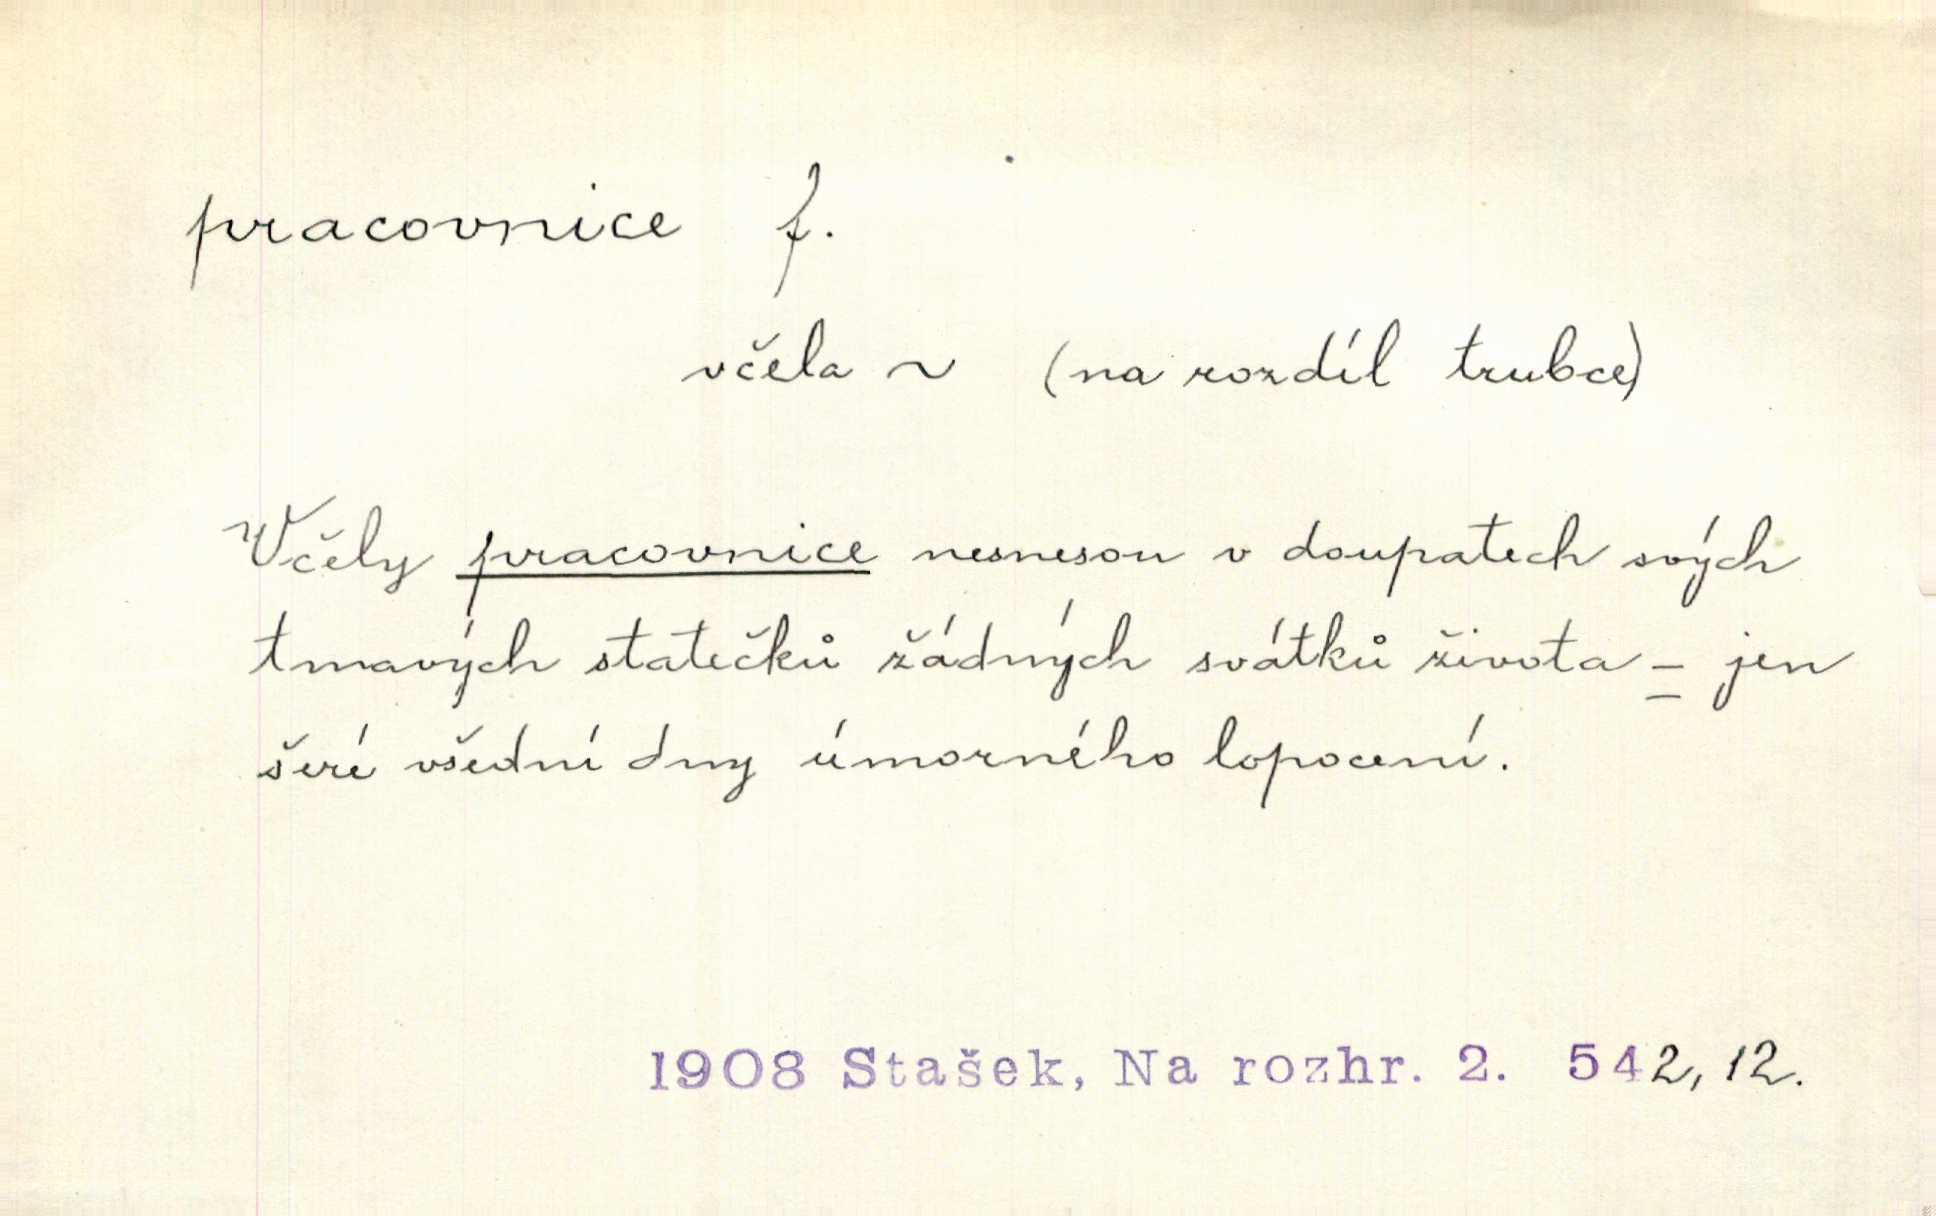 pracovnice f.
včela ~ (na rozdíl trubce)
Včely pracovnice nesnesou v doupatech svých
tmavých statečků žádných svátků života – jen
šeré všední dny úmorného lopocení.
1908 Stašek, Na rozhr. 2. 542, 12.